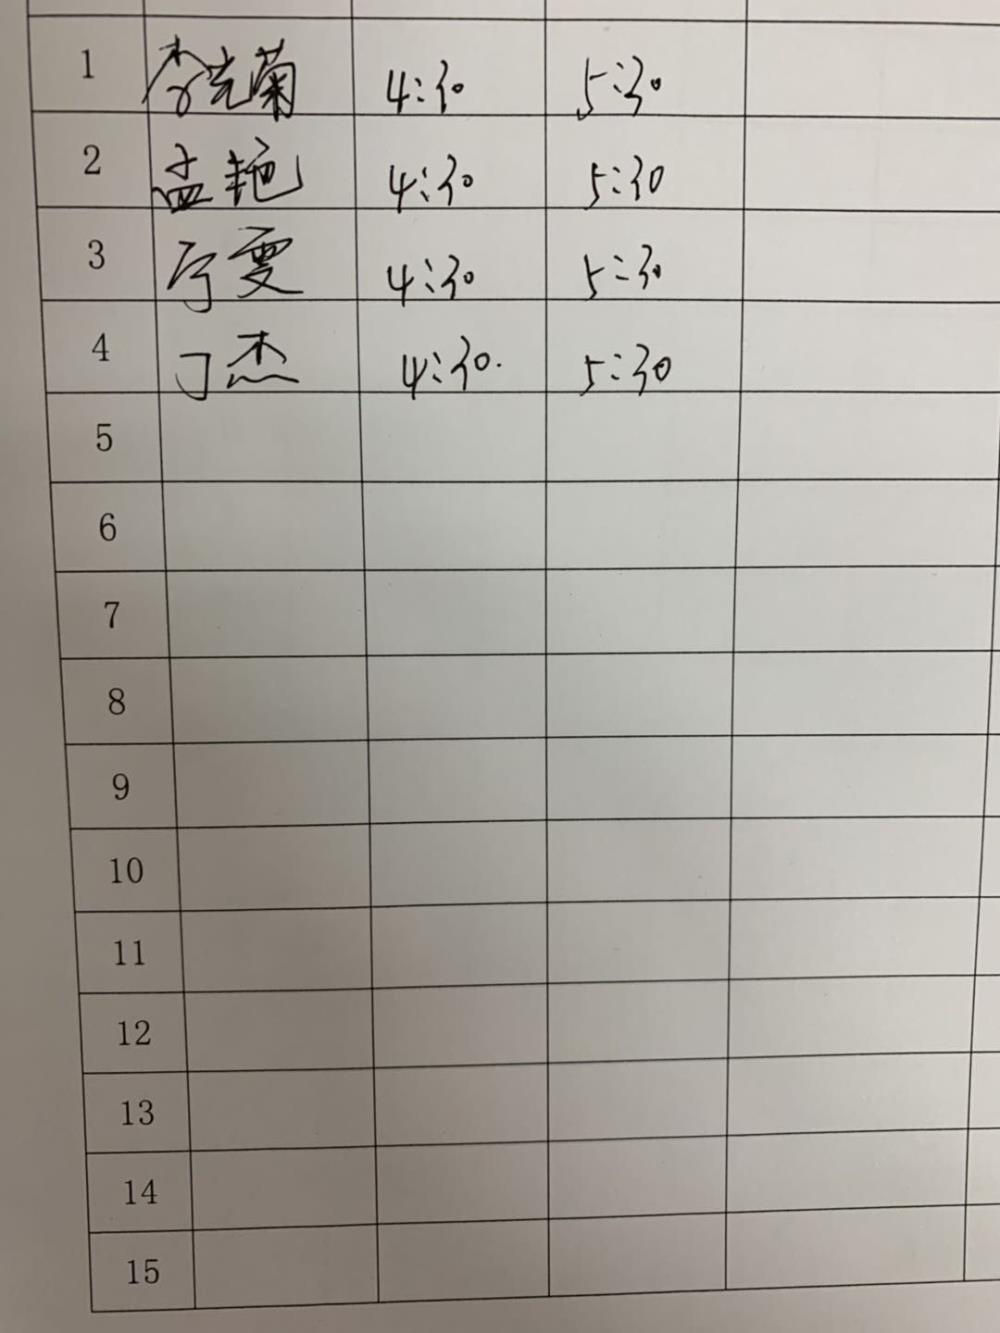 1 李光菊 4:30 5:30
2 孟艳 4:30 5:30
3 4:30 5:30
4 丁杰 4:30 5:30
5
6
7
8
9
10
11
12
13
14
15